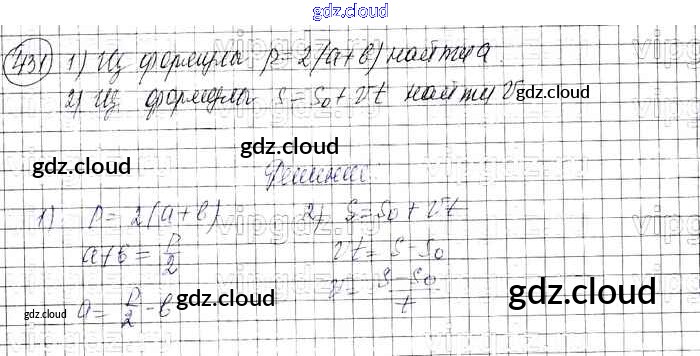 gdz.cloud
431 1) Из формулы p=2(a+b) найти a.
2) Из формулы s=s₀+vt найти v.
gdz.cloud
gdz.cloud
gdz.cloud
Решение
1) p=2(a+b) 2) s=s₀+vt
a+b=p/2 vt=s-s₀
a=p/2-b v=(s-s₀)/t
gdz.cloud
gdz.cloud
gdz.cloud